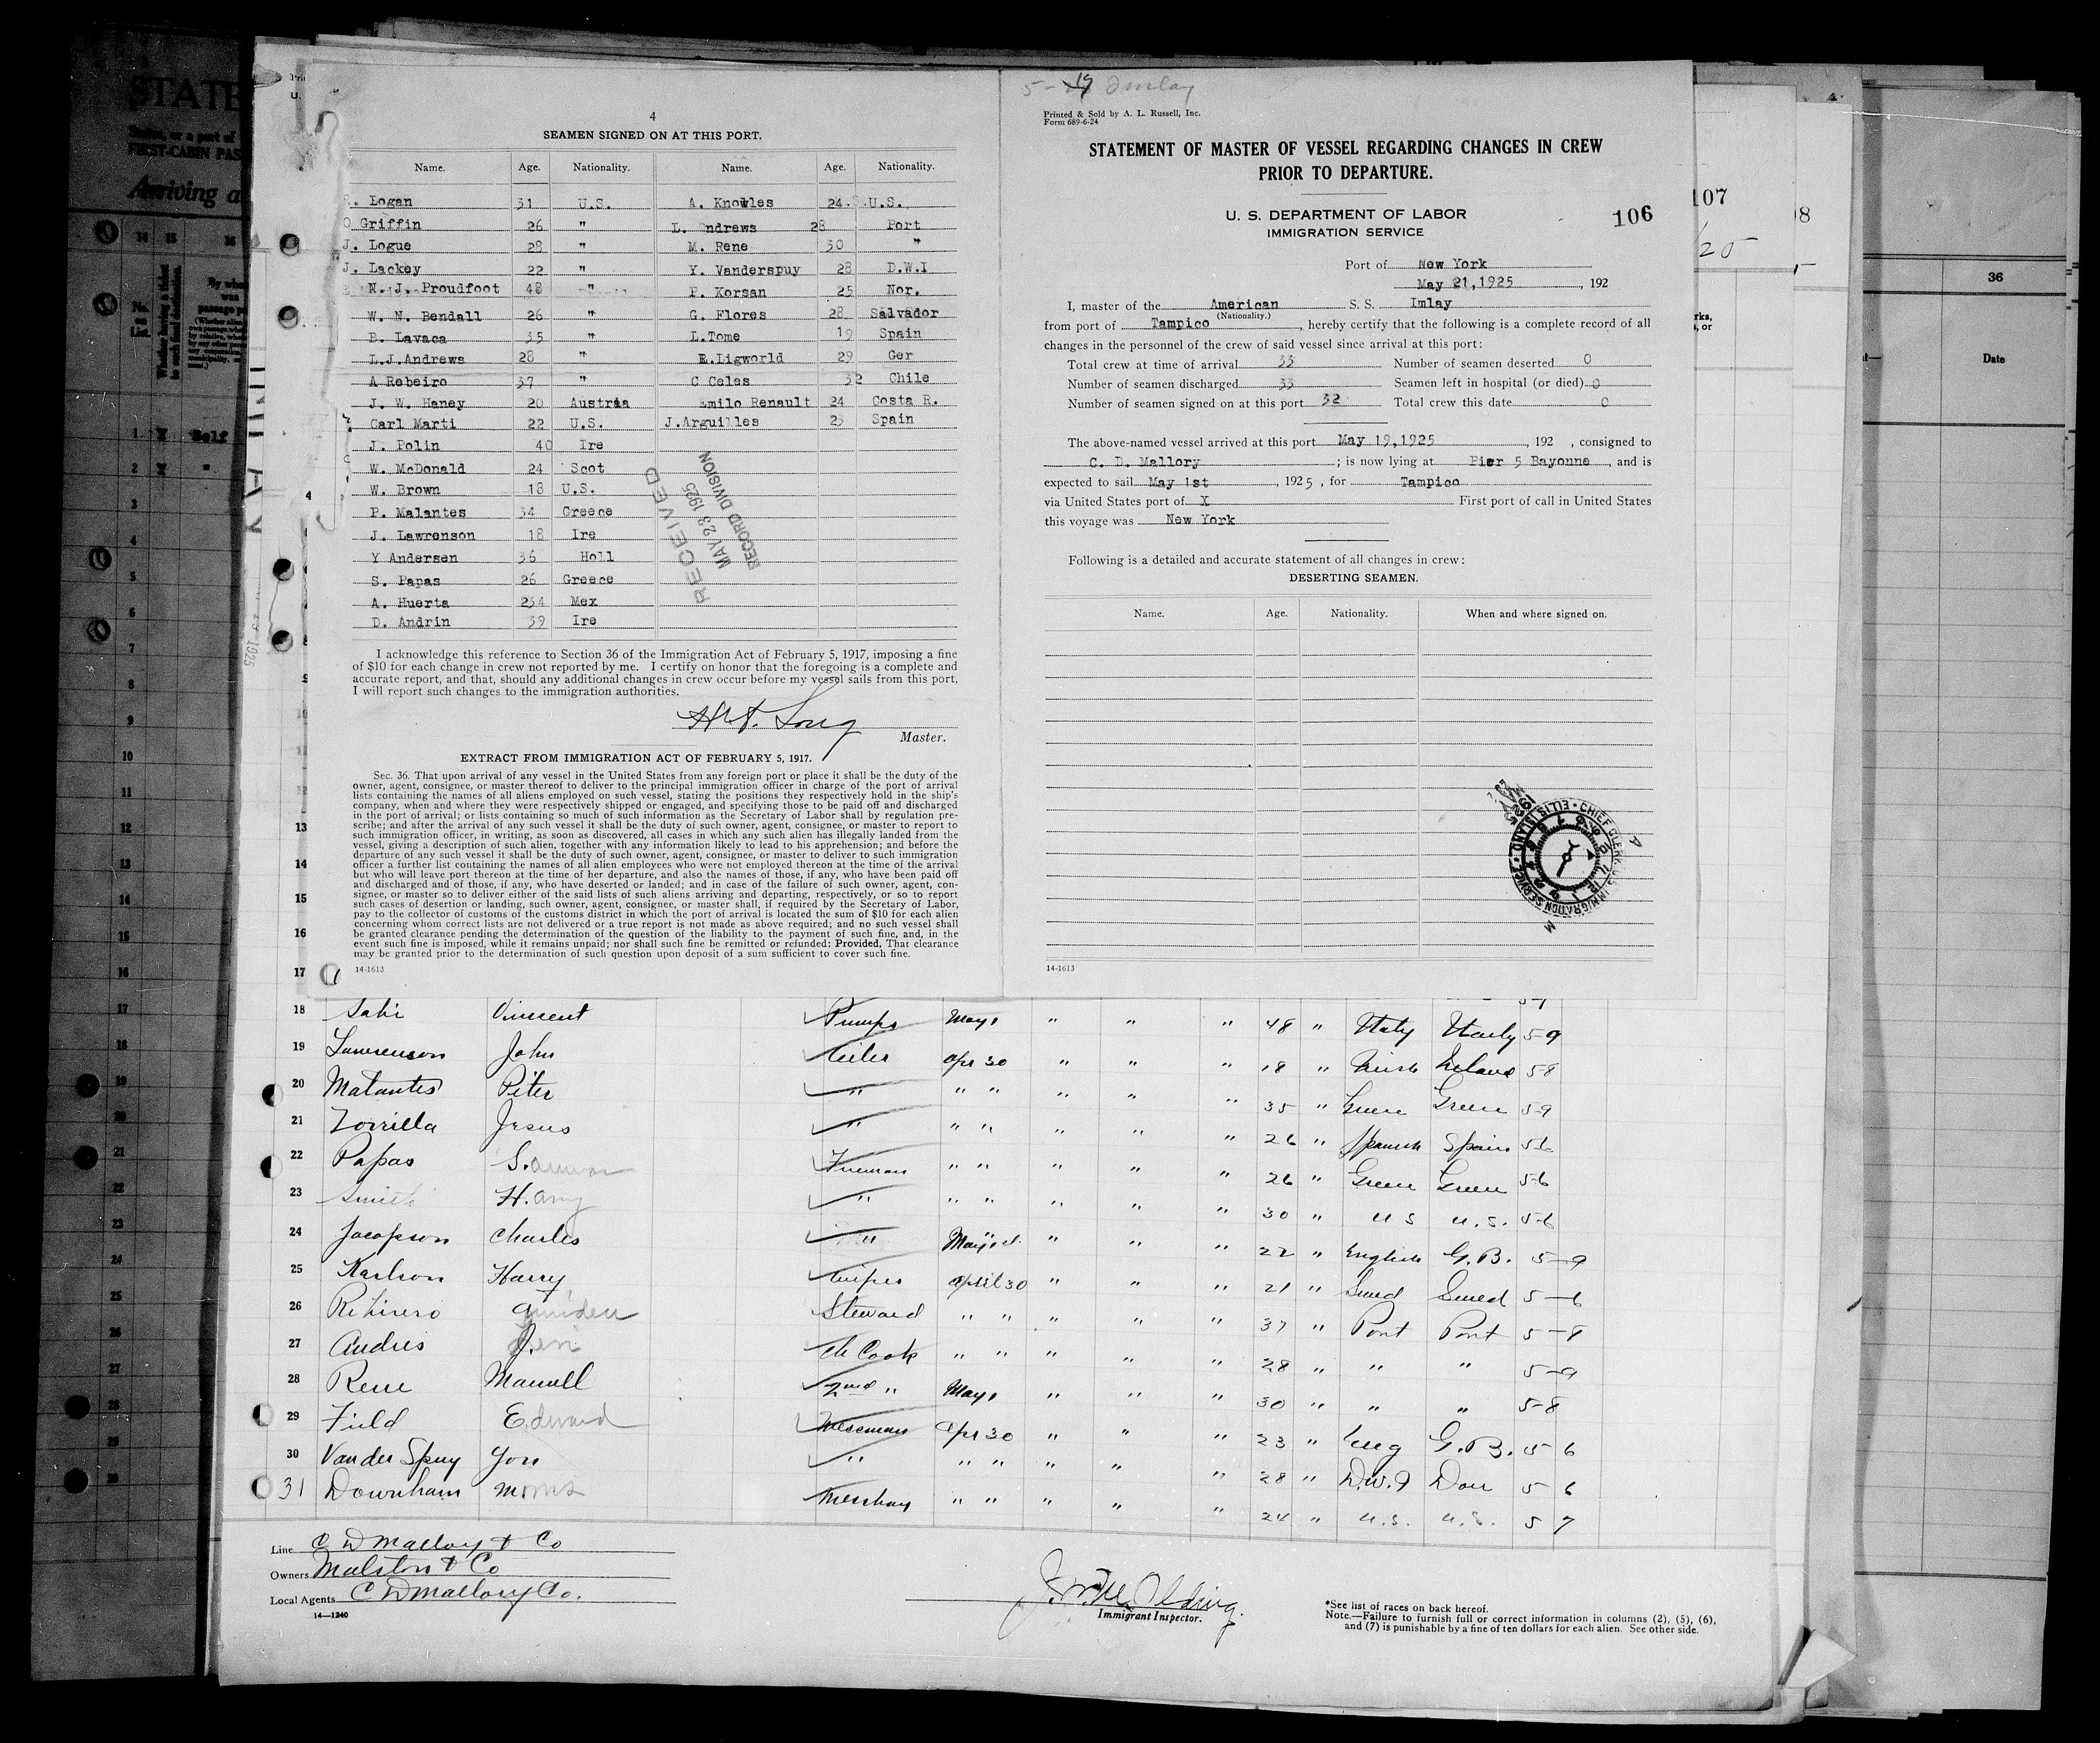 STATE
FIRST-CABIN PAS
Arriving a
14 15 16
No. on List.
1 X Self
2 X "
3
4
5
6
7
8
9
10
11
12
13
14
15
16
17
4
SEAMEN SIGNED ON AT THIS PORT.
Name. Age. Nationality. Name. Age. Nationality.
Logan 31 U.S. A. Knowles 24 U.S.
O Griffin 26 " L. ndrews 28 Port
J. Logue 28 " M. Rene 30 "
J. Lackey 22 " Y. Vanderspuy 28 D.W.I
N. J. Proudfoot 48 " P. Korsan 25 Nor.
W. N. Bendall 26 " G. Flores 28 Salvador
P. Lavaca 35 " L.Tome 19 Spain
L.J.Andrews 28 " E.Ligworld 29 Ger
A Rebeiro 37 " C Celes 32 Chile
J. W. Haney 20 Austria Emilo Renault 24 Costa R.
Carl Marti 22 U.S. J.Arguilles 23 Spain
J. Polin 40 Ire
W. McDonald 24 Scot
W. Brown 18 U.S.
P. Malantes 34 Greece
J. Lawrenson 18 Ire
Y Andersen 36 Holl
S. Papas 26 Greece
A. Huerta 234 Mex
D. Andrin 39 Ire
RECEIVED
MAY 23 1925
RECORD DIVISION
I acknowledge this reference to Section 36 of the Immigration Act of February 5, 1917, imposing a fine
of $10 for each change in crew not reported by me. I certify on honor that the foregoing is a complete and
accurate report, and that, should any additional changes in crew occur before my vessel sails from this port,
I will report such changes to the immigration authorities.
Long
Master.
EXTRACT FROM IMMIGRATION ACT OF FEBRUARY 5, 1917.
Sec. 36. That upon arrival of any vessel in the United States from any foreign port or place it shall be the duty of the
owner, agent, consignee, or master thereof to deliver to the principal immigration officer in charge of the port of arrival
lists containing the names of all aliens employed on such vessel, stating the positions they respectively hold in the ship's
company, when and where they were respectively shipped or engaged, and specifying those to be paid off and discharged
in the port of arrival; or lists containing so much of such information as the Secretary of Labor shall by regulation pre-
scribe; and after the arrival of any such vessel it shall be the duty of such owner, agent, consignee, or master to report to
such immigration officer, in writing, as soon as discovered, all cases in which any such alien has illegally landed from the
vessel, giving a description of such alien, together with any information likely to lead to his apprehension; and before the
departure of any such vessel it shall be the duty of such owner, agent, consignee, or master to deliver to such immigration
officer a further list containing the names of all alien employees who were not employed thereon at the time of the arrival
but who will leave port thereon at the time of her departure, and also the names of those, if any, who have been paid off
and discharged and of those, if any, who have deserted or landed; and in case of the failure of such owner, agent, con-
signee, or master so to deliver either of the said lists of such aliens arriving and departing, respectively, or so to report
such cases of desertion or landing, such owner, agent, consignee, or master shall, if required by the Secretary of Labor,
pay to the collector of customs of the customs district in which the port of arrival is located the sum of $10 for each alien
concerning whom correct lists are not delivered or a true report is not made as above required; and no such vessel shall
be granted clearance pending the determination of the question of the liability to the payment of such fine, and, in the
event such fine is imposed, while it remains unpaid; nor shall such fine be remitted or refunded: Provided, That clearance
may be granted prior to the determination of such question upon deposit of a sum sufficient to cover such fine.
14-1613
5-19 Imlay
Printed & Sold by A. L. Russell, Inc.
Form 689-6-24
STATEMENT OF MASTER OF VESSEL REGARDING CHANGES IN CREW
PRIOR TO DEPARTURE.
U. S. DEPARTMENT OF LABOR
IMMIGRATION SERVICE
106
Port of New York
May 21,1925, 192
I, master of the American S. S. Imlay
(Nationality.)
from port of Tampico, hereby certify that the following is a complete record of all
changes in the personnel of the crew of said vessel since arrival at this port:
Total crew at time of arrival 33 Number of seamen deserted 0
Number of seamen discharged 33 Seamen left in hospital (or died) 0
Number of seamen signed on at this port 32 Total crew this date 0
The above-named vessel arrived at this port May 19,1925, 192 , consigned to
C. D. Mallory; is now lying at Pier 5 Bayonne, and is
expected to sail May 1st, 1925, for Tampico
via United States port of X First port of call in United States
this voyage was New York
Following is a detailed and accurate statement of all changes in crew:
DESERTING SEAMEN.
Name. Age. Nationality. When and where signed on.
CHIEF CLERK IMMIGRATION SERVICE ELLIS ISLAND
14-1613
107
/25
36
Date
18 Sabi Vincent Pumps May 1 " " " 48 " Italy Italy 5-9
19 Lawrenson John Oiler Apr 30 " " " 18 " Irish Ireland 5 8
20 Matantes Peter " " " " " " 35 " Greece Greece 5-9
21 Zorrilla Jesus " " " " " " 26 " Spanish Spain 5 6
22 Papas S. Fireman " " " " " 26 " Greece Greece 5-6
23 Smith Harry " " " " " " 30 " U S U.S. 5-6
24 Jacopson Charles " May 1st " " " 22 " English G.B. 5-9
25 Karlson Harry Wiper April 30 " " " 21 " Swed Swed 5-6
26 Steward " " " " " 37 " Port Port 5-8
27 Andres J. Ch Cook " " " " " 28 " " " 5-9
28 Rene Manuell 2nd " May 1 " " " 30 " " " 5-8
29 Field Edward Messman Apr 30 " " " 23 " Eng G.B. 5 6
30 Van der Spuy Yon " " " " " " 28 " D.W.I 5 6
31 Downham Messboy " " " " " 24 " U.S. U.S. 5 7
Line C D Mallory & Co
Owners Malston & Co
Local Agents C D Mallory Co.
14-1240
Immigrant Inspector.
*See list of races on back hereof.
Note.—Failure to furnish full or correct information in columns (2), (5), (6),
and (7) is punishable by a fine of ten dollars for each alien. See other side.